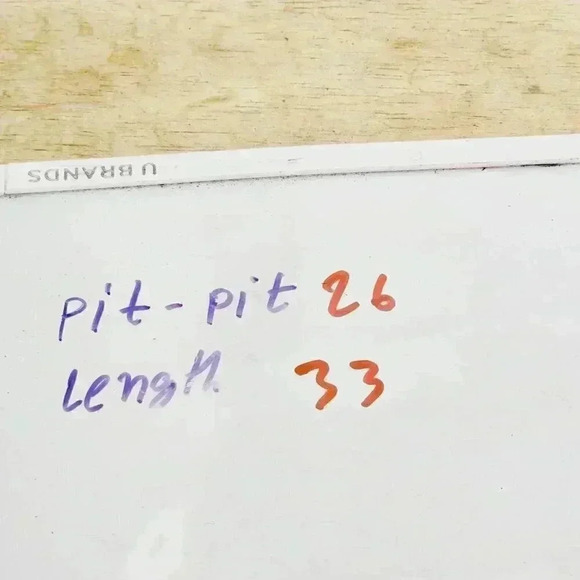 U BRANDS
pit-pit 26
Length 33